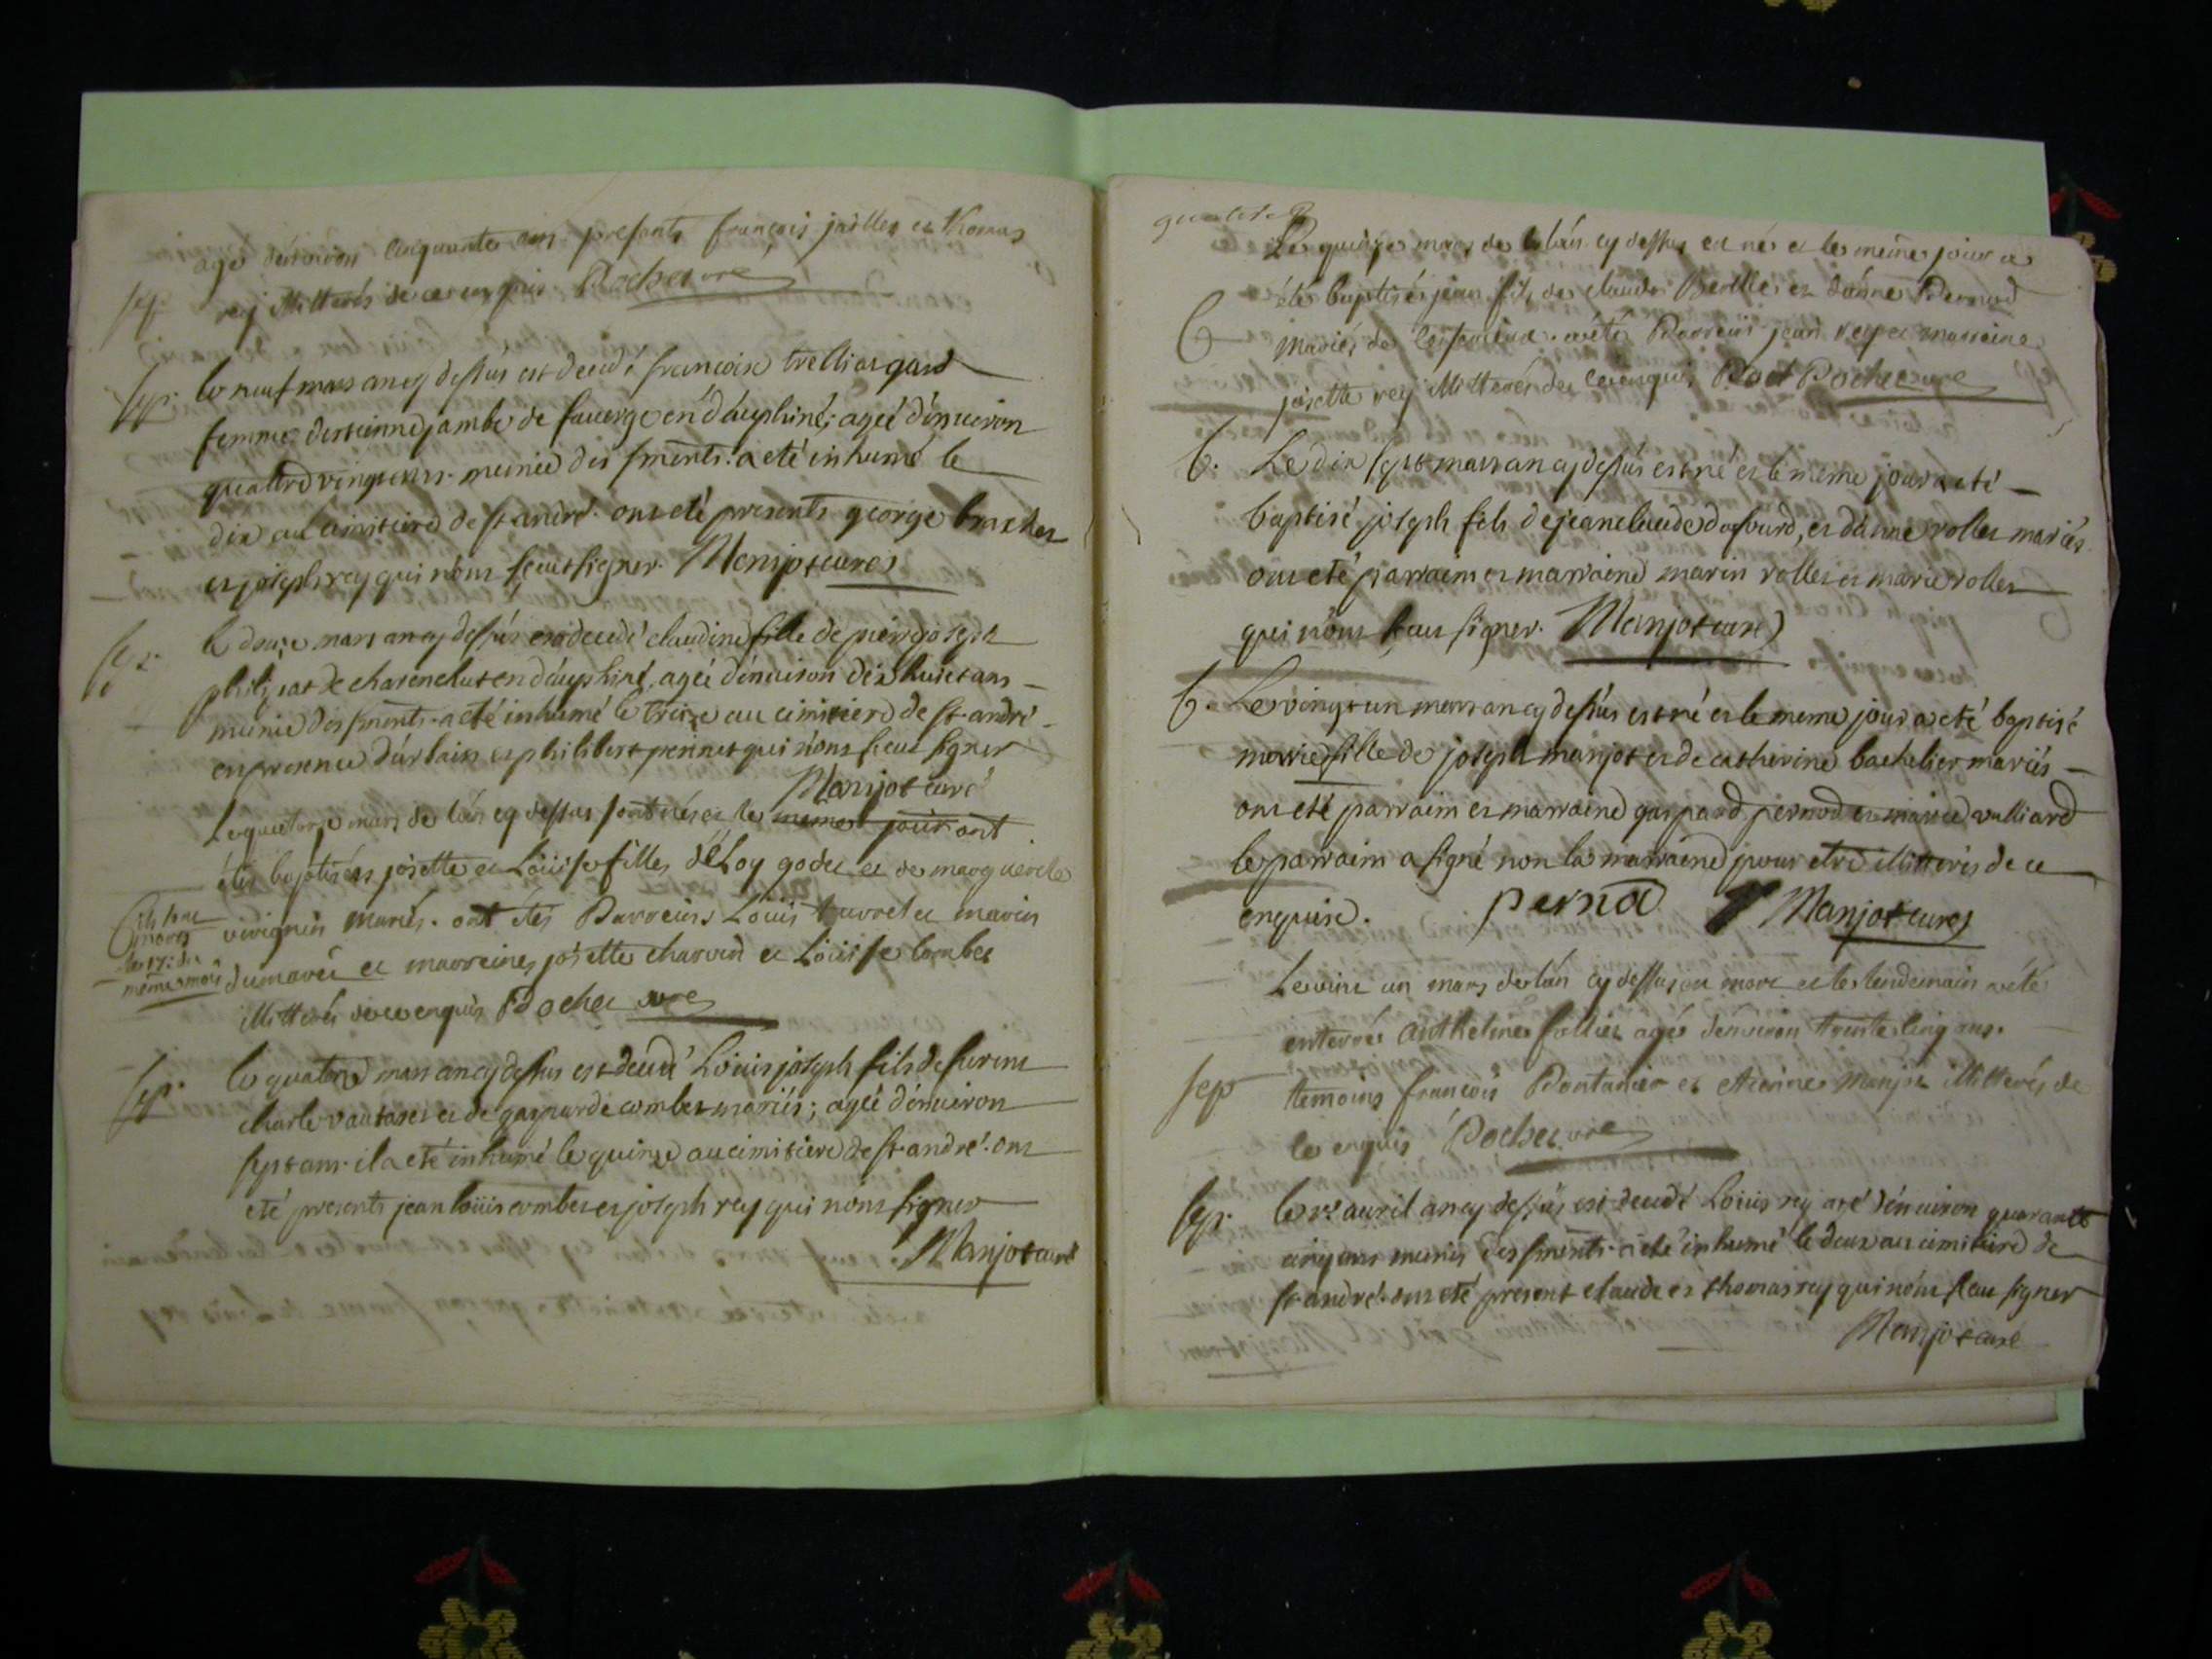 agé dénviron cinquante ans presents françois jailles et thomas
sep rey illitterés de ce enquis Roche curé
sep. le neuf mars an cy dessus est decedé francoise trelliasgard
femme destienne jambe de faverge en daupbiné; ageé dénviron
quattre vingt ans. munie des sments. a eté inhumé le
dix au cimitiere de st andré. ont eté presents george brachet
et joseph rey qui nont sceut signer. Manjot curé
sep. le douze mars an cy dessus est decedé claudine fille de pierre joseph
de charenchut en dauphiné, ageé dénviron dix huict ans
munie des sments. a eté inhumé le treize au cimitiere de st. andré
en presence durbain et philibert perinet qui nont sceu signer
Manjot curé
Le quatorze mars de lán cy dessus sont nées et le même jour ont
étés baptisées josette et Loüise filles déLoy godet et de marguerite
vivignis mariés. ont étés Parreins Loüis et marin
le 17: du
même mois
dumaréi et marreines josette charvin et Loüise combet
illitterés de ce enquis Roche curé
sep. le quatorze mars an cy dessus est decedé Loüis joseph fils de surint
charle vautaret et de gasparde combet mariés; ageé dénviron
sept ans. il a eté inhumé le quinze au cimitiere de st. andré. ont
eté presents jean loüis combet et joseph rey qui nont signer
Manjot curé
Le quinze mars de lán cy dessus est né et le même jour a
été baptisé jean fils de claude Berlle et dánne Bernard
b mariés de . a été Parrein jean rey et marreine
josette rey illitterés de ce enquis Roche curé
b. Le dix sept mars an cy dessus est né et le meme jour a eté
baptisé joseph fils de jean claude dufourd, et dánne rollet mariés
ont eté parraim et marraine marin rollet et marie rollet
qui nont sceu signer. Manjot curé
b. Le vingt un mars an cy dessus est né et le meme jour a eté baptisé
marie fille de joseph manjot et de catherine bachelier mariés
ont eté parraim et marraine gaspard pernod et marie vulliard
le parraim a signé non la marraine pour etre illitteris de ce
enquise. pernod Manjot curé
Le vint un mars de lán cy dessus est mort et le lendemain a été
enterré anthelme follier agé dénviron trente cinq ans.
sep temoins françois Pontanier et etienne manjot illitterés de
ce enquis Roche curé
sep. le 1er auril an cy dessus est decedé Loüis rey agé dénviron quarante
cinq ans munis des sments. a eté inhumé le deux au cimitiere de
st. andré. ont eté present claude et thomas rey qui nont sceu signer
Manjot curé